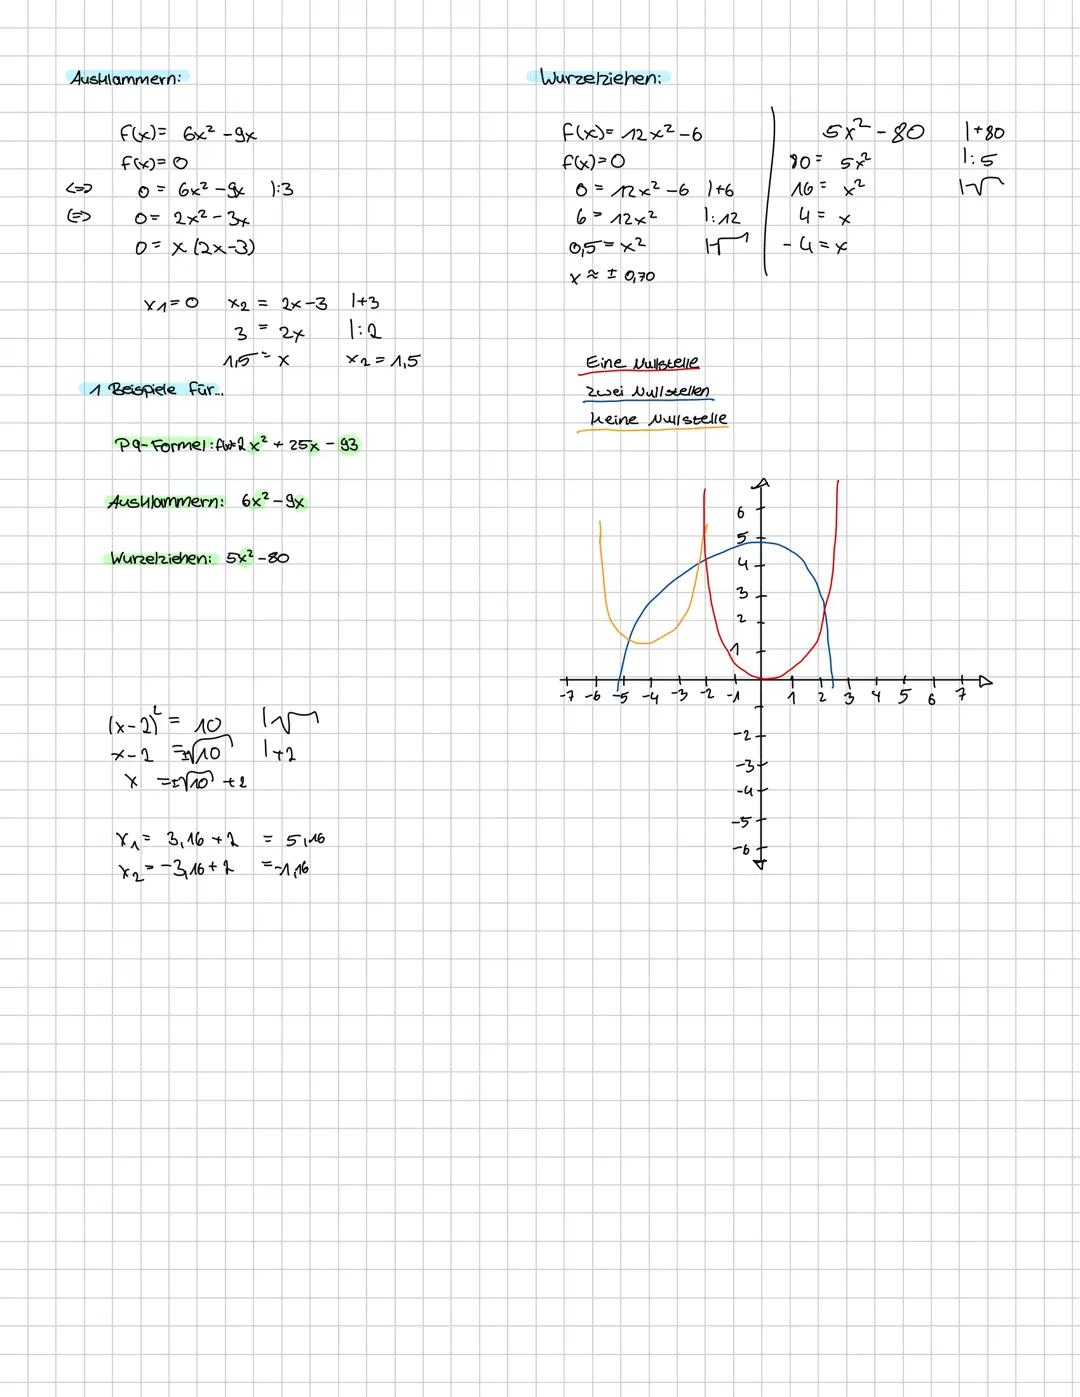 Ausklammern:
f(x)= 6x² -9x
f(x)= 0
<=> 0 = 6x² -9x |:3
<=> 0= 2x² - 3x
0= x (2x-3)
x₁=0 x₂ = 2x-3 |+3
3 = 2x |:2
1,5 = x x₂ = 1,5
1 Beispiele für...
Pq-Formel: f(x)=2x² + 25x - 93
Ausklammern: 6x² -9x
Wurzelziehen: 5x² -80
(x-2)² = 10 |√
x-2 =±√10 |+2
x =±√10 +2
x₁= 3,16 +2 = 5,16
x₂= -3,16+2 =-1,16
Wurzelziehen:
f(x)= 12x² -6
f(x)=0
0 = 12x² -6 |+6
6= 12x² |:12
0,5=x² |√
x ≈ ± 0,70
5x² - 80 |+80
80= 5x² |:5
16= x² |√
4= x
-4=x
Eine Nullstelle
zwei Nullstellen
keine Nullstelle
6
5
4
3
2
1
-7 -6 -5 -4 -3 -2 -1 1 2 3 4 5 6 7
-2
-3
-4
-5
-6